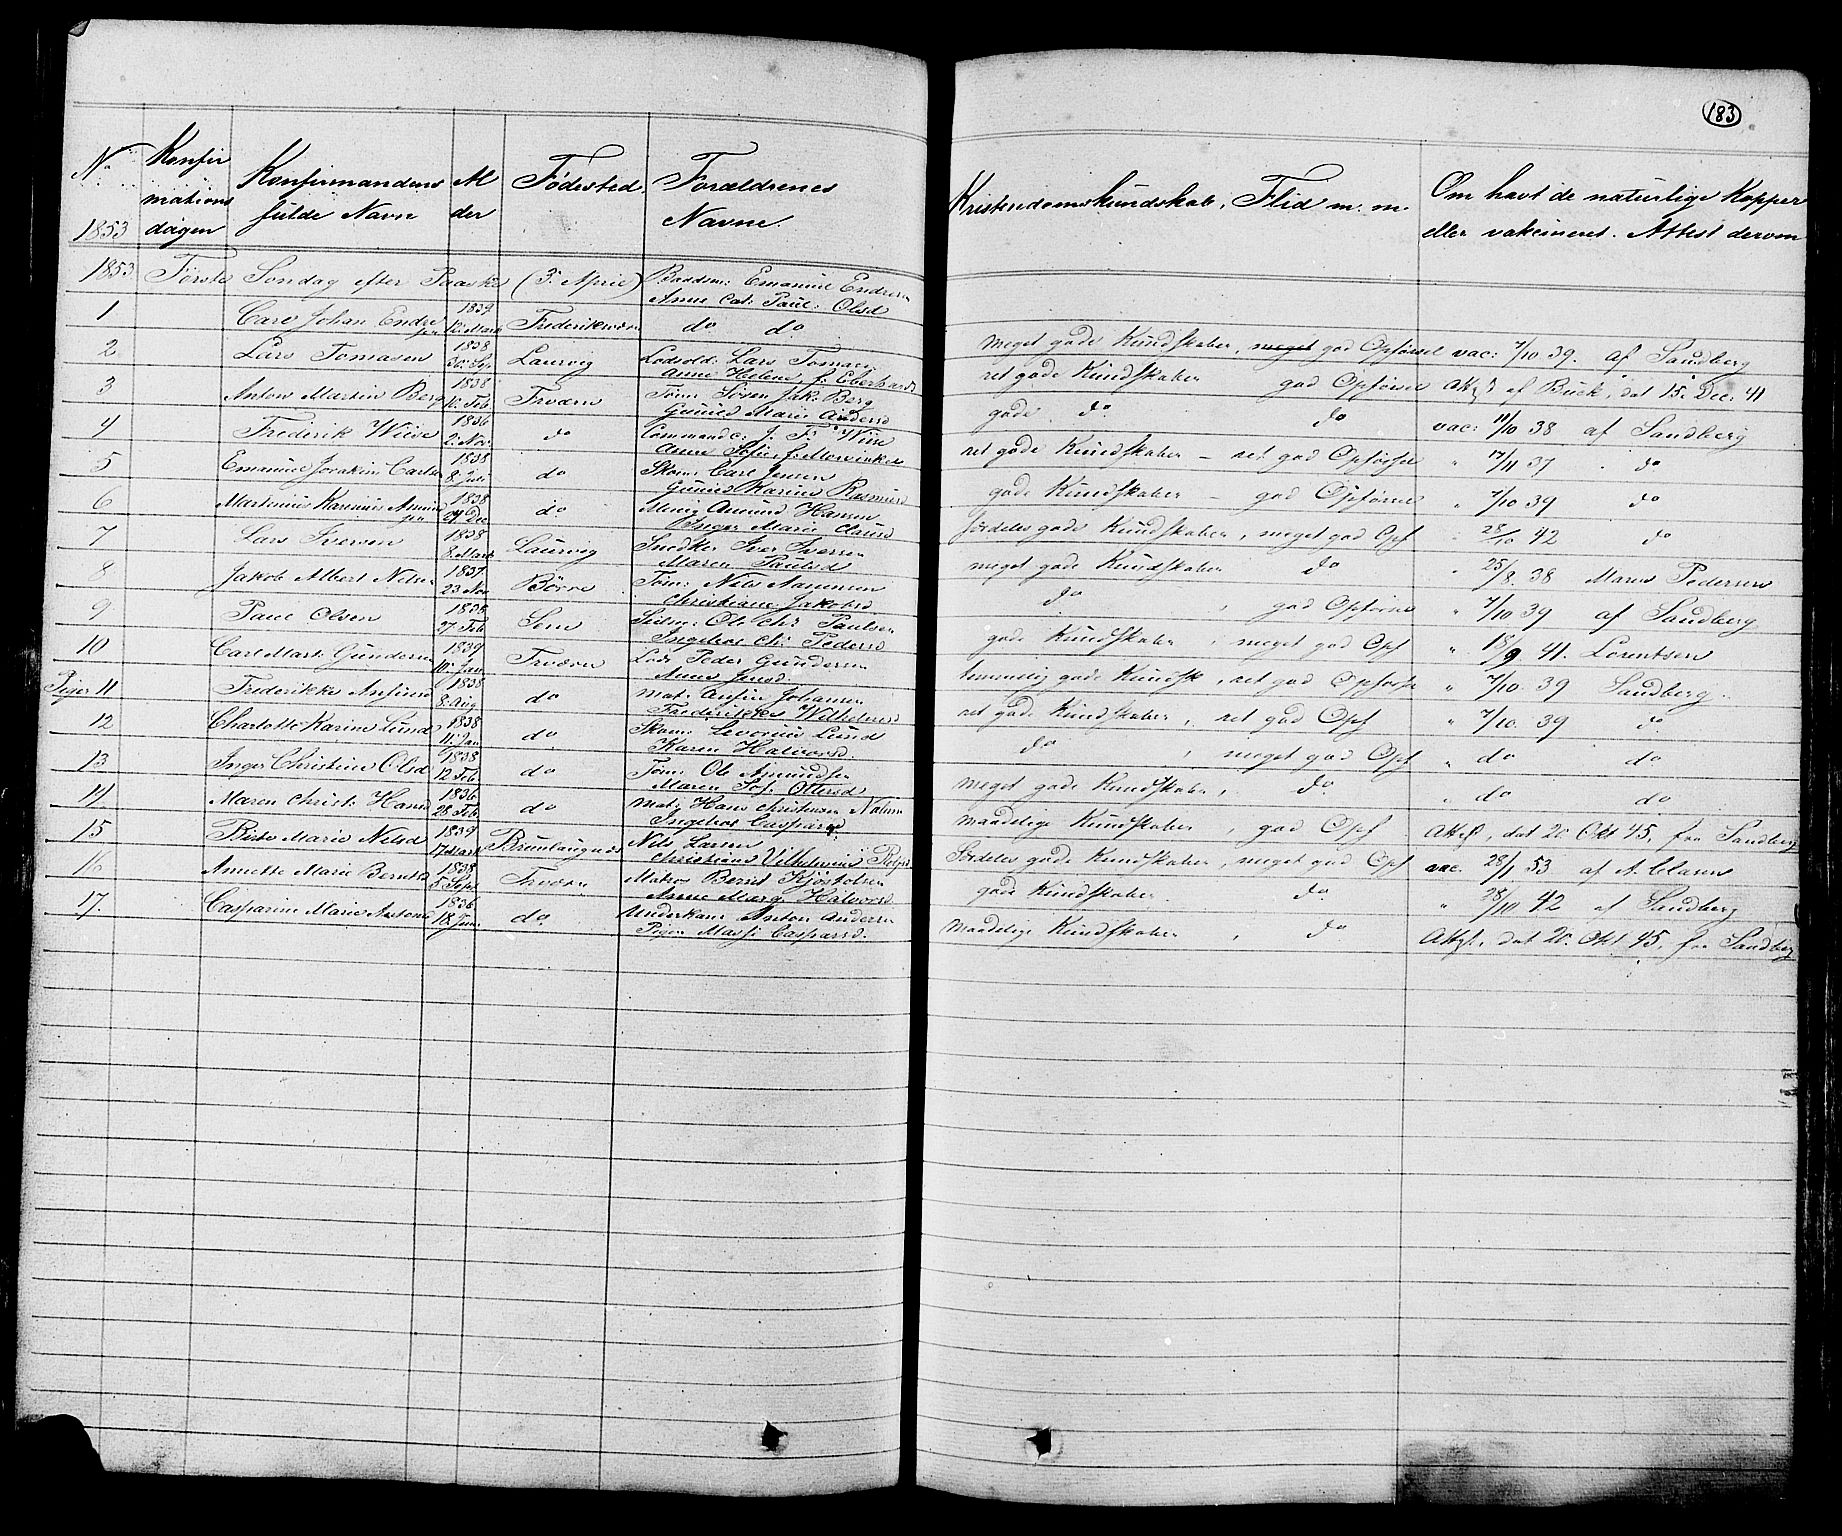 183
No 1853 Konfirmationsdagen Konfirmandens fulde Navn Alder Fødested Forældrenes Navne. Kristendomskundskab, Flid m. m. Om havt de naturlige Kopper eller vakcineret. Attest derom
1853 Første Søndag efter Paaske (3. April) Baadsm: Emanuel Endresen
Anne Cat: Paul: Olsd
1 Carl Johan Endresen 1839 12. Marts Frederiksværn do do meget gode Kundskaber, meget god Opførsel vac: 7/10 39. af Sandberg
2 Lars Tomasen 1838 30. Sp. Laurvig Lodsold: Lars Tomasen
Anne Helene f. Eberhardt ret gode Kundskaber god Opførsel Att. af Buck, dat 15. Dec. 41
3 Anton Martin Berg 1838 12. Feb Frværn Tøm: Søren Jak. Berg
Gunild Marie Andersd gode do do vac: 11/10 38 af Sandberg
4 Frederik Wiise 1836 2. Nov. do Commandc: J. F. Wiise
Anne Sofie f. ret gode Kundskaber – ret god Opførsel " 17/11 37 do
5 Emanuel Joakim Carlsen 1838 8. Juli do Skom: Carl Jensen
Gunild Karine Rasmusd gode Kundskaber – god Opførsel " 7/10 39 do
6 Martinius Karinius Amundsen 1838 27 Dec do Menig Amund Hansen
Inger Marie Clausd særdeles gode Kundskaber, meget god Opf " 28/10 42 do
7 Lars Iversen 1838 8. Marts Laurvig Snedker Iver Iversen
Maren Paulsd meget gode Kundskaber do " 25/8. 38 Maren Pedersen
8 Jakob Albert Nilsen 1837 23 Nov Bövre Tøm: Nils Aamunsen
Christiane Jakobsd do , god Opførsel " 7/10 39 af Sandberg
9 Paul Olsen 1838 27 Feb Sem Seilm: Ole Chr Paulsen
Ingeborg Ch: Pedersd gode Kundskaber meget god Opf " 18/9 41. Lorentsen
10 Carl Mart: Gundersen 1839 10. Jan Frværn Lods Peder Gundersen
Anne Jensd temmelig gode Kundsk, ret god Opførsel " 7/10. 39 Sandberg.
Piger 11 Frederikke Anfinsd 1838 8. Aug do Mat: Anfin Johansen
Frederikkes Wilhelmsd ret gode Kundskaber, ret god Opf " 7/10. 39 do
12 Charlotte Karine Lund 1838 11. Jan do Skom: Levorius Lund
Karen Halvorsd do , meget god Opf " do do
13 Inger Christine Olsd 1838 12 Feb. do Tøm: Ole Amundsen
Maren Sof: Ottersd meget gode Kundskaber, do " do do
14 Maren Christ: Hansd 1836 28 Feb do mat: Hans Christensen
Ingeborg Caspersd maadelige Kundskaber, god Opf Att, dat 20 Okt 45, fra Sandberg
15 Birte Marie Nilsd 1839 17 Mart Brunlaugnæs Nils Larsen
Christiane Vilhelmine særdeles gode Kundskaber, meget god Opf vac. 28/1 53 af A. Clasen
16 Annette Marie Berntsd 1838 5 Sept Frværn Matros Bernt Kjøstolsen
Anne Marg. Halvorsd gode Kundskaber. do. " 28/10 42 af Sandberg
17. Casparine Marie Antonsd 1836 18. Juni do. Underkan: Anton Andersen
Pigen Massi Caspersd. maadelige Kundskaber, do Att., dat 20. Okt 45, fra Sandberg